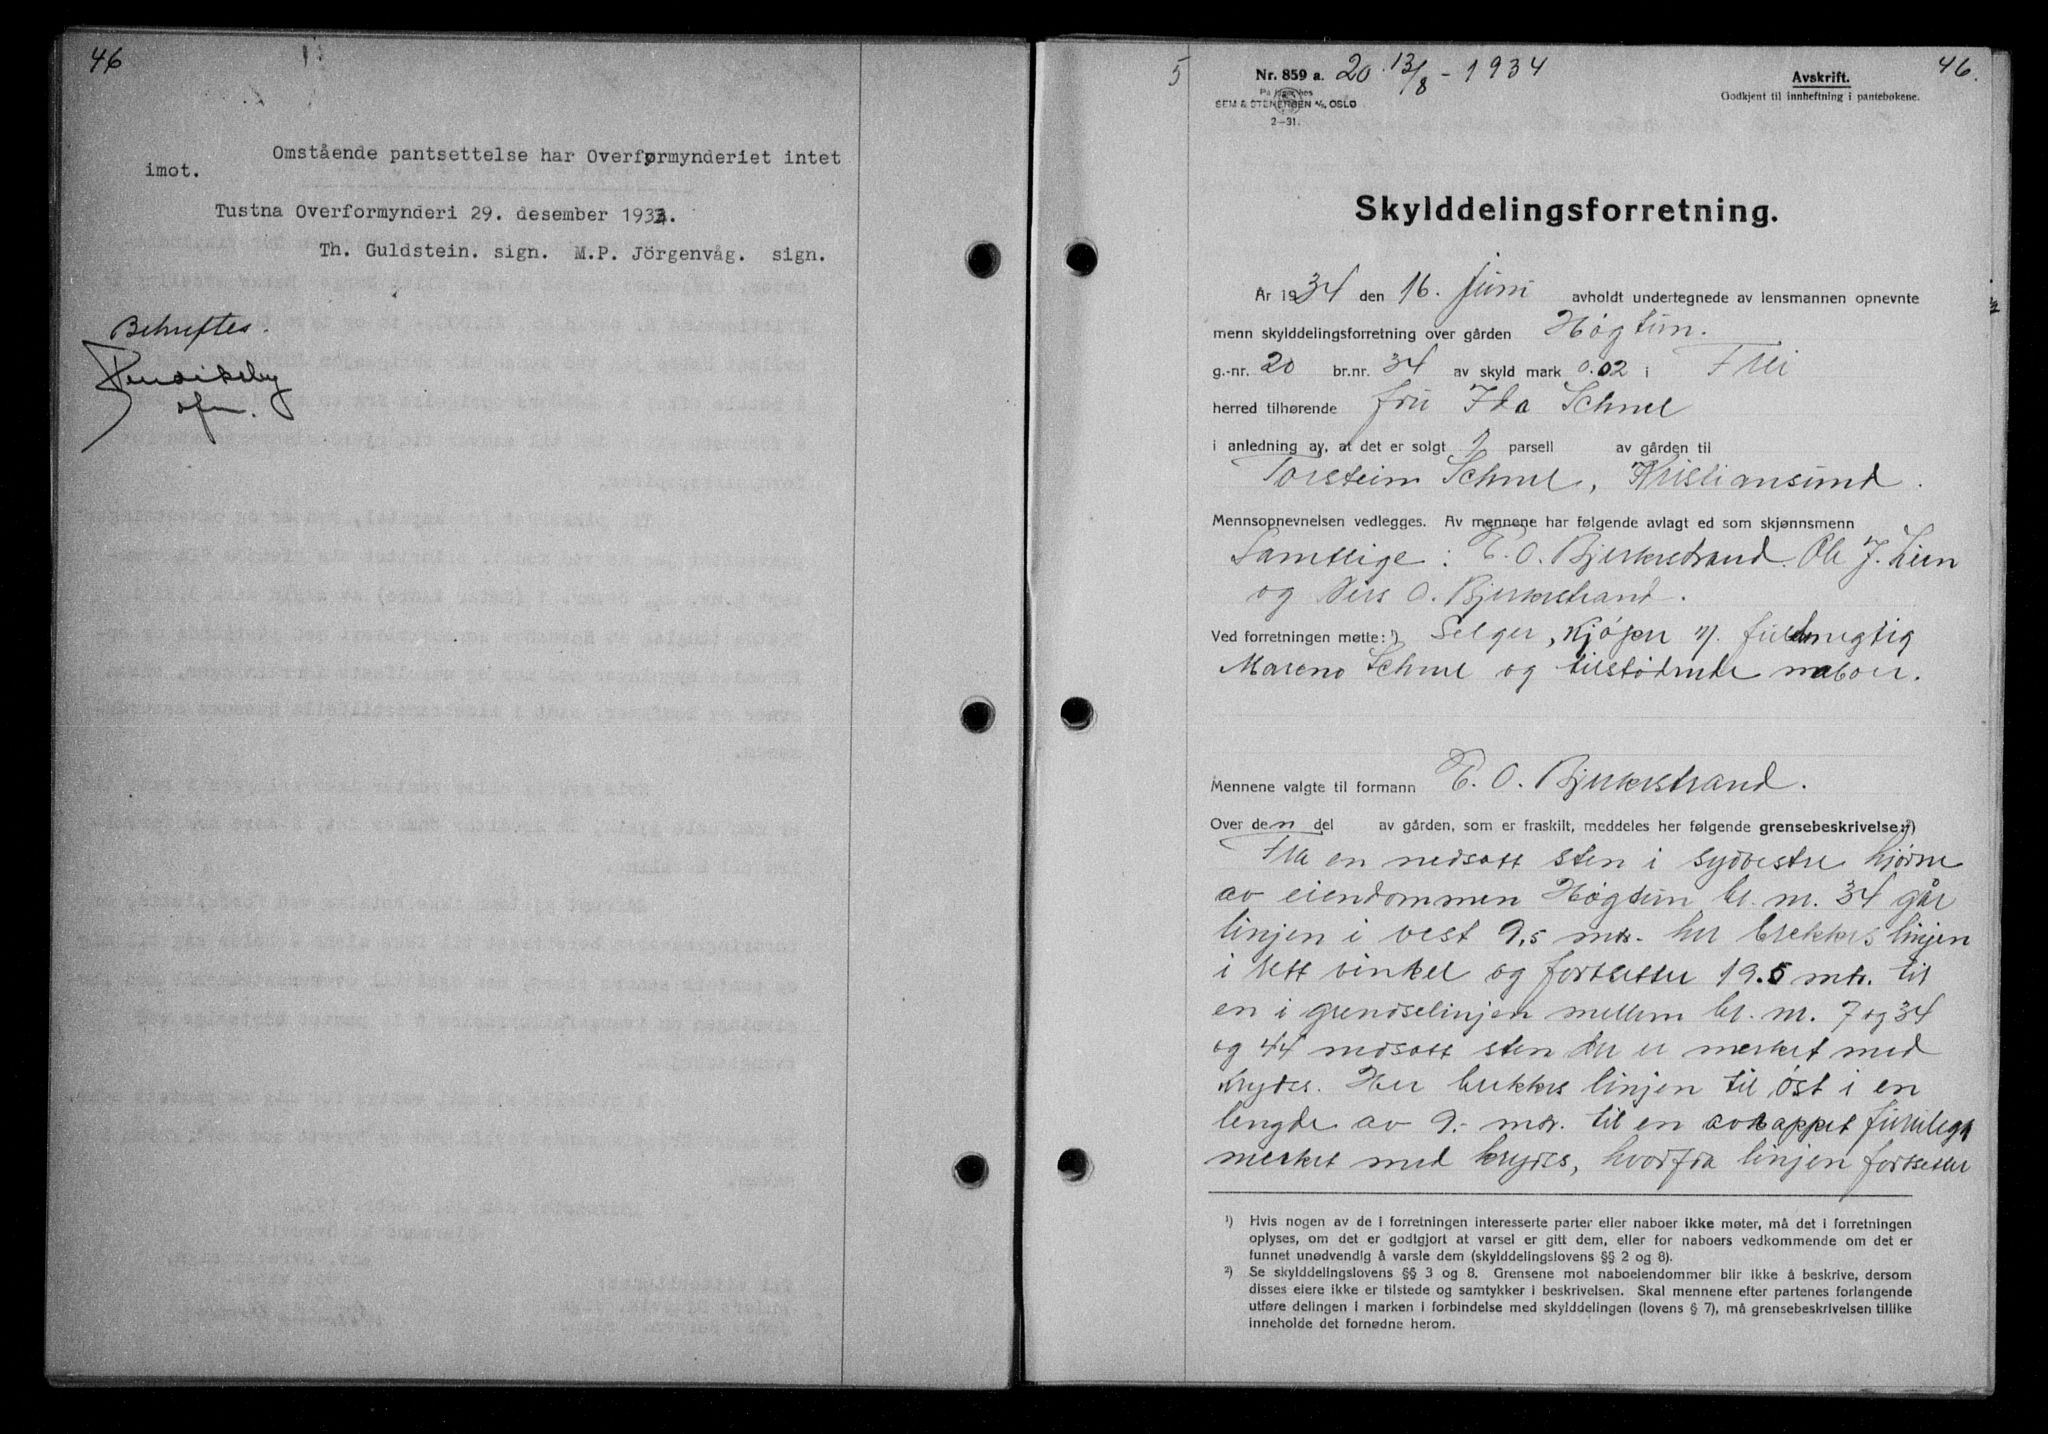 46
Omstående pantsettelse har Overformynderiet intet
imot.
Tustna Overformynderi 29. desember 1933.
Th. Guldstein. sign. M.P. Jörgenvåg. sign.
Bekreftes.
5
Nr. 859 a. 20. 13/8 - 1934
Avskrift.
46.
Godkjent til innheftning i pantebøkene.
SEM & STENERSEN A/S OSLO
2-31.
Skylddelingsforretning.
År 1934 den 16. juni avholdt undertegnede av lensmannen opnevnte
menn skylddelingsforretning over gården Høgtun.
g.-nr. 20 br.nr. 34 av skyld mark 0.02 i Frei
herred tilhørende fru Ida Schnel
i anledning av, at det er solgt 1 parsell av gården til
Torstein Schnel, Kristiansund.
Mennsopnevnelsen vedlegges. Av mennene har følgende avlagt ed som skjønnsmenn
Samtlige: O. Bjerkestrand. Ole J. Lien
og O. Bjerkestrand.
Ved forretningen møtte: ¹) Selger, Kjøper v/ fuldmegtig
Mareno Schnel og tilstødende naboer.
Mennene valgte til formann O. Bjerkestrand.
Over den del av gården, som er fraskilt, meddeles her følgende grensebeskrivelse: ²)
Fra en nedsatt sten i sydvestre hjørne
av eiendommen Høgtun br. nr. 34 går
linjen i vest 9,5 mtr. her brekkes linjen
i rett vinkel og fortsetter 19.5 mtr. til
en i grendselinjen mellem br. nr. 7 og 34
og 44 nedsatt sten der er merket med
kryds. Her brekkes linjen til øst i en
lengde av 9.- mtr. til en avkappet furulegg
merket med kryds, hvorfra linjen fortsetter
¹) Hvis nogen av de i forretningen interesserte parter eller naboer ikke møter, må det i forretningen
oplyses, om det er godtgjort at varsel er gitt dem, eller for naboers vedkommende om det er
funnet unødvendig å varsle dem (skylddelingslovens §§ 2 og 8).
²) Se skylddelingslovens §§ 3 og 8. Grensene mot naboeiendommer blir ikke å beskrive, dersom
disses eiere ikke er tilstede og samtykker i beskrivelsen. Skal mennene efter partenes forlangende
utføre delingen i marken i forbindelse med skylddelingen (lovens § 7), må grensebeskrivelsen tillike
inneholde det fornødne herom.